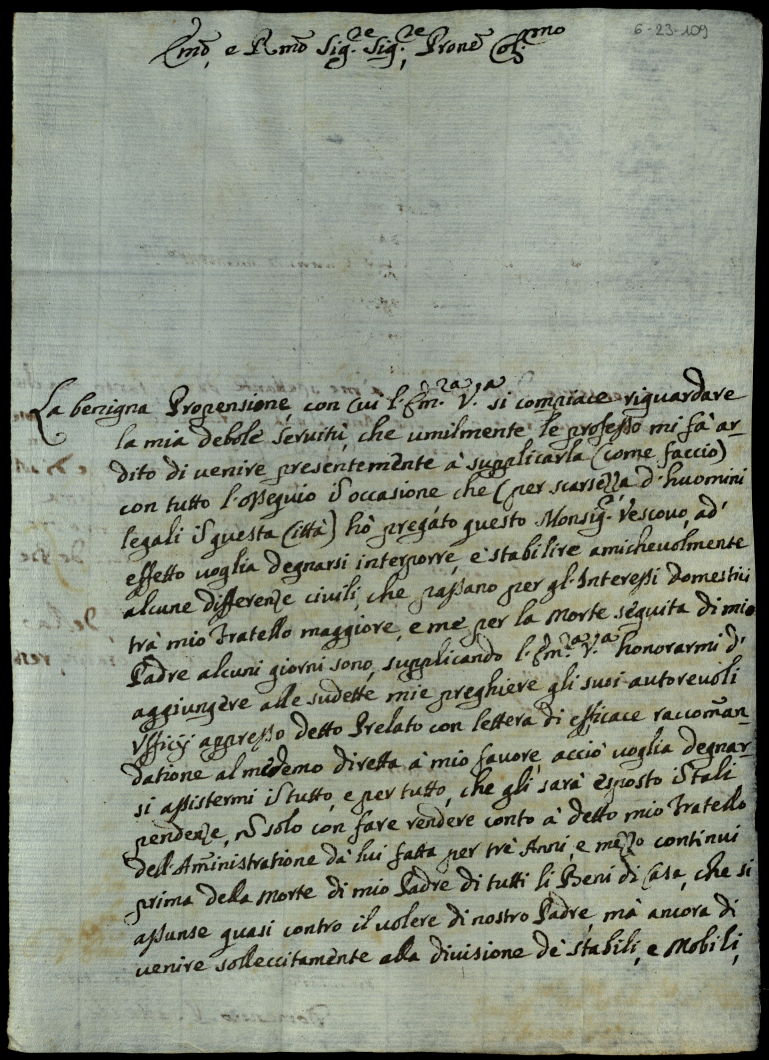 6-23-109
Emo, e Rmo Sig.re Sig.re, Prone Col.mo
La benigna Propensione, con cui l'Em.za V.a si compiace riguardare
la mia debole servitù, che umilmente le professo mi fà ar-
dito di venire presentemente à supplicarla (come faccio)
con tutto l'ossequio in occasione che (per scarsezza d'huomini
legali in questa Città) hò pregato questo Monsig.r Vescovo, ad'
effetto voglia degnarsi interporre, e stabilire amichevolmente
alcune differenze civili, che passano per gl'Interessi domestici
trà mio Fratello maggiore, e me per la Morte seguita di mio
Padre alcuni giorni sono, supplicando l'Em.za V.a honorarmi d'
aggiungere alle sudette mie preghiere gli suoi autorevoli
Ufficij appresso detto Prelato con lettera di efficace raccoman-
datione al medemo diretta à mio favore, acciò voglia degnar-
si assistermi in tutto, e per tutto, che gli sarà esposto in tali
pendenze, non solo con fare rendere conto à detto mio Fratello
dell'Amministratione dà lui fatta per trè Anni, e mezzo continui
prima della Morte di mio Padre di tutti li Beni di Casa, che si
assunse quasi contro il volere di nostro Padre, mà ancora di
venire sollecitamente alla divisione de' stabili, e Mobili,